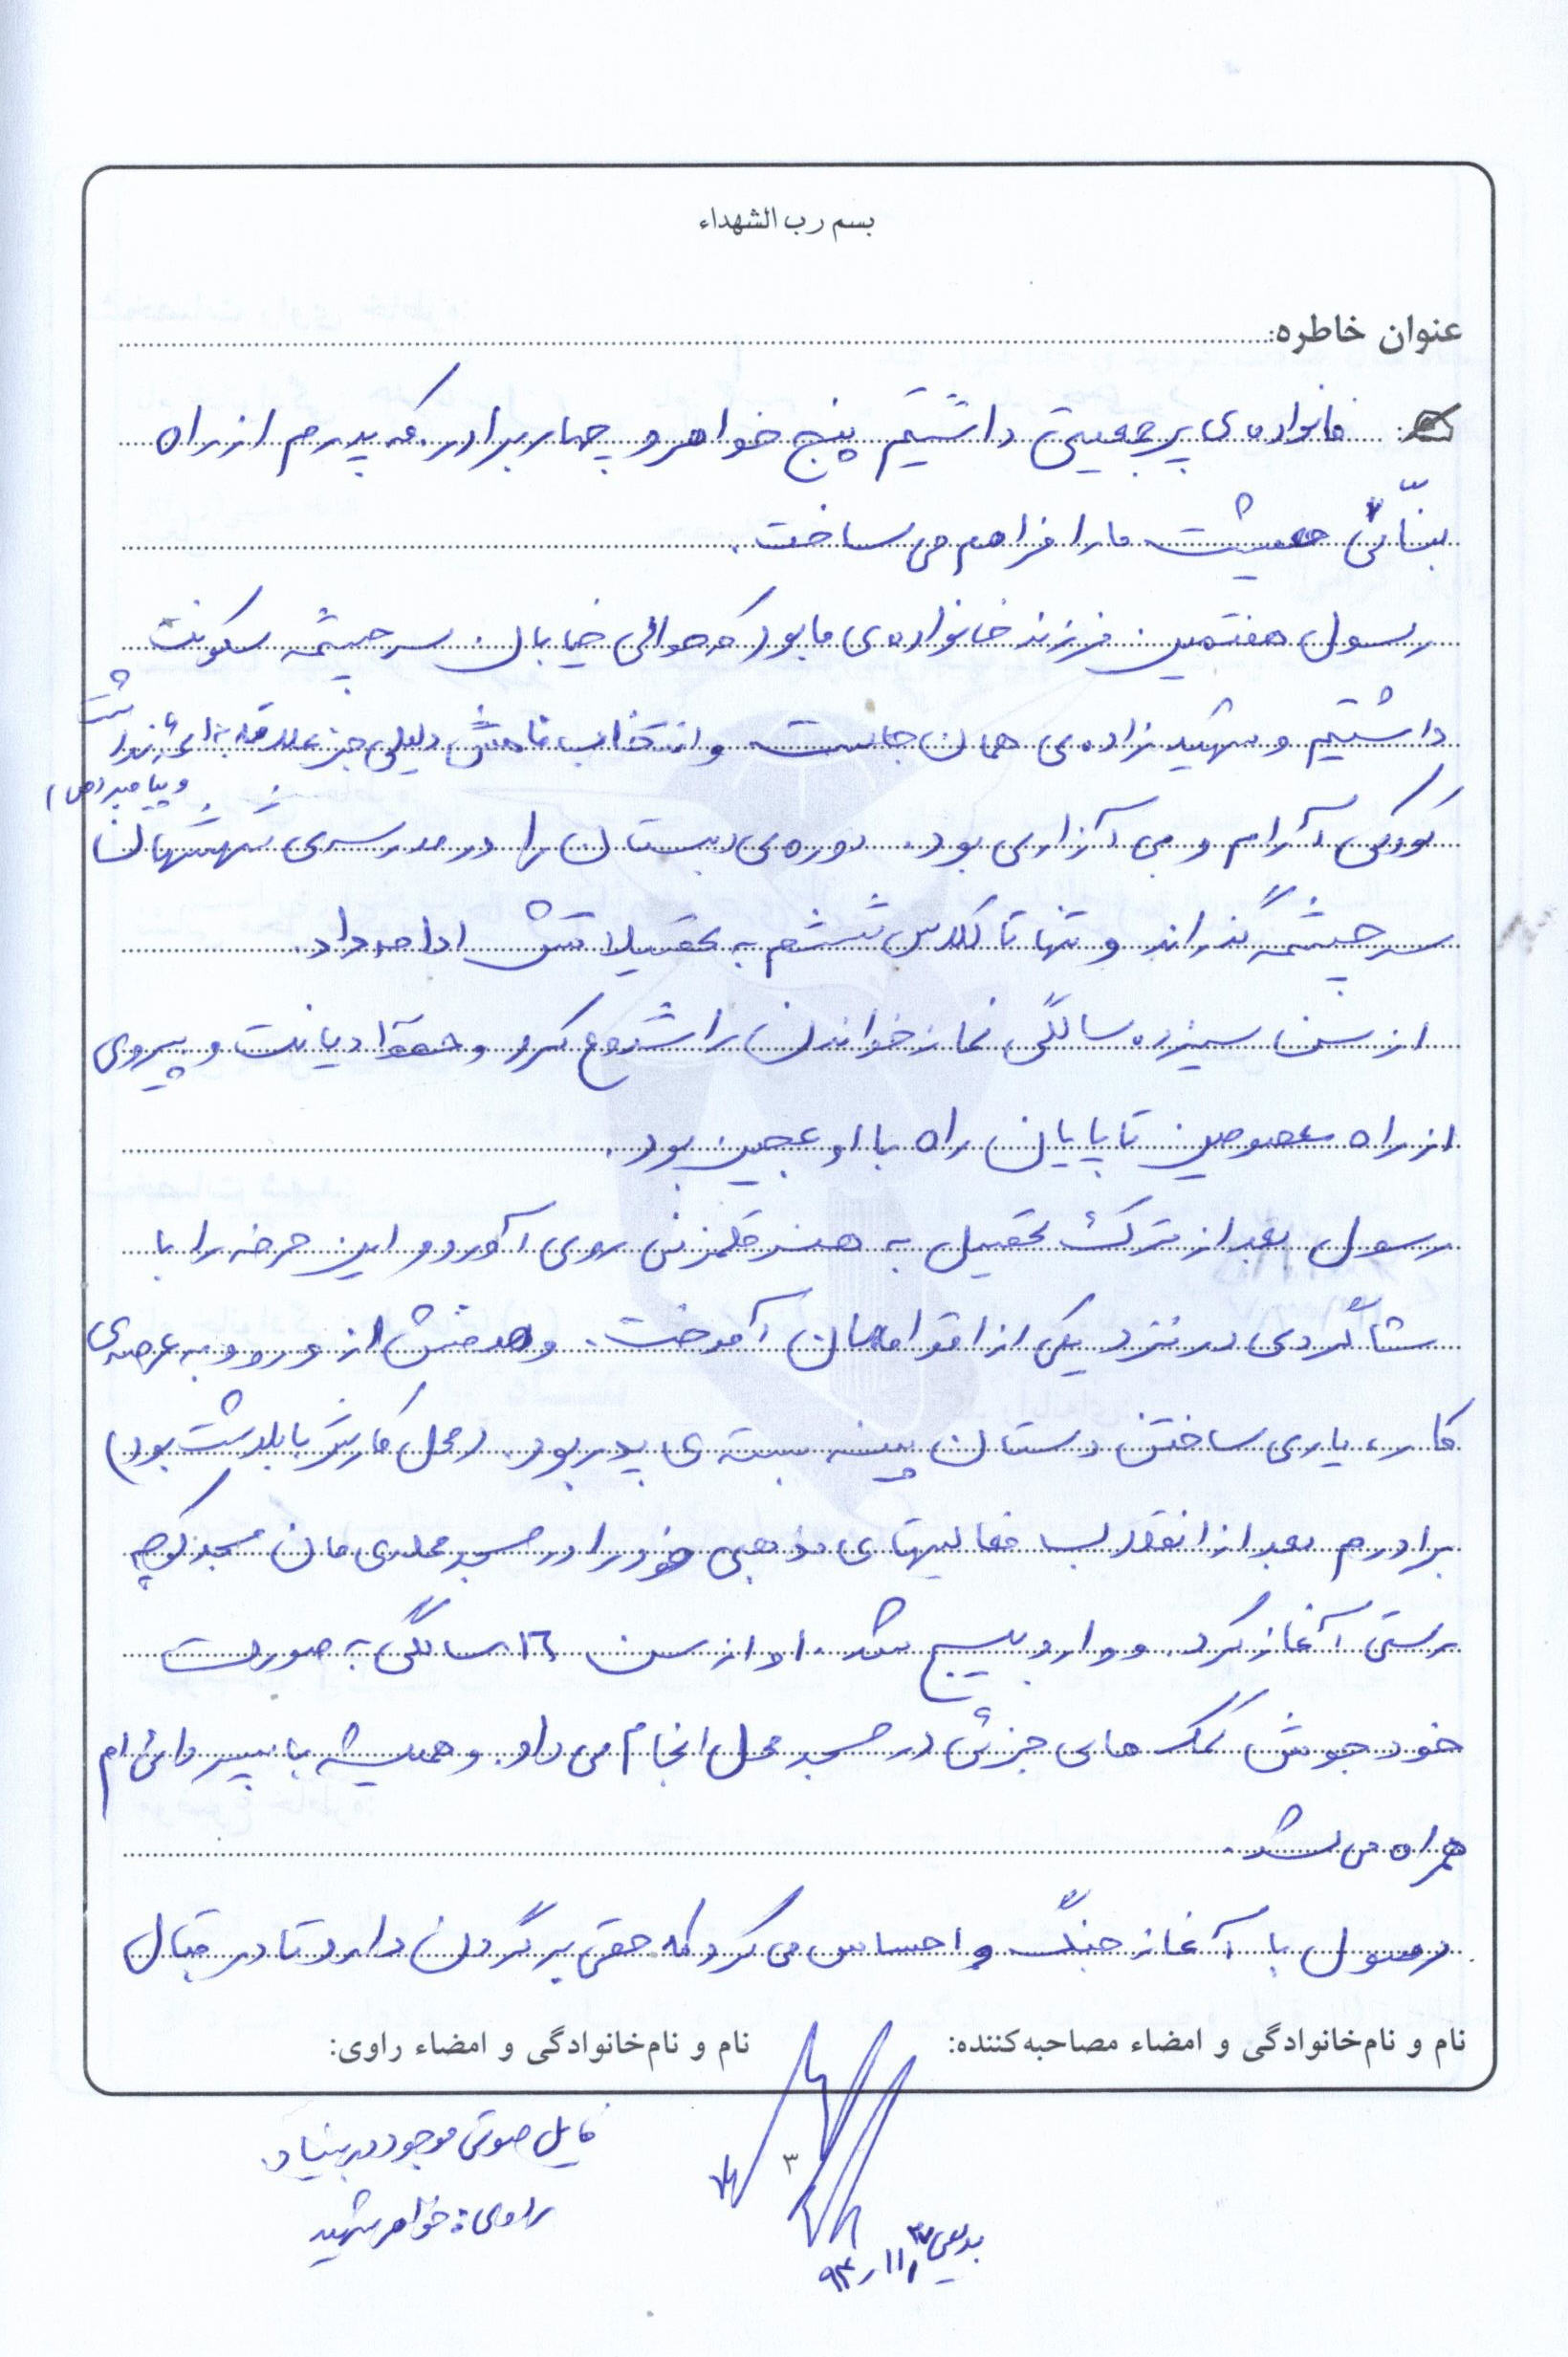 بسم رب الشهداء
عنوان خاطره:
خانواده‌ی پرجمعیتی داشتیم پنج خواهر و چهار برادر. که پدرم از راه
بنّائی معیشت ما را فراهم می ساخت.
رسول هفتمین فرزند خانواده‌ی ما بود که حوالی خیابان سرچشمه سکونت
داشتیم و شهید زاده‌ی همان جاست و انتخاب نامش دلیلی جز علاقه به ائمه نداشت
و پیامبر (ص)
کودکی آرام و بی آزاری بود. دوره‌ی دبستان را در مدرسه‌ی شهشهان
سرچشمه گذراند و تنها تا کلاس ششم به تحصیلاتش ادامه داد.
از سن سیزده سالگی نماز خواندن را شروع کرد و دیانت و پیروی
از راه معصومین تا پایان راه با او عجین بود.
رسول بعد از ترک تحصیل به هنر قلمزنی روی آورد و این حرفه را با
شاگردی در نزد یکی از اقوامان آموخت. و هدفش از ورود به عرصه‌ی
کار، یاری ساختن دستان پینه بسته‌ی پدر بود. (محل کارش بابلدشت بود)
برادرم بعد از انقلاب فعالیتهای مذهبی خود را در مسجد محله‌ی مان مسجد کوچه
آغاز کرد. و وارد بسیج شد. او از سن ۱۶ سالگی به صورت
خودجوش کمک های جزئی در مسجد محل انجام می داد. و همیشه با پسر دائی ام
همراه می شد.
رسول با آغاز جنگ احساس می کرد که حقی بر گردن دارد تا در قبال
نام و نام‌خانوادگی و امضاء مصاحبه‌کننده:
نام و نام‌خانوادگی و امضاء راوی:
فایل صوتی موجود در بنیاد
راوی: خواهر شهید
۳